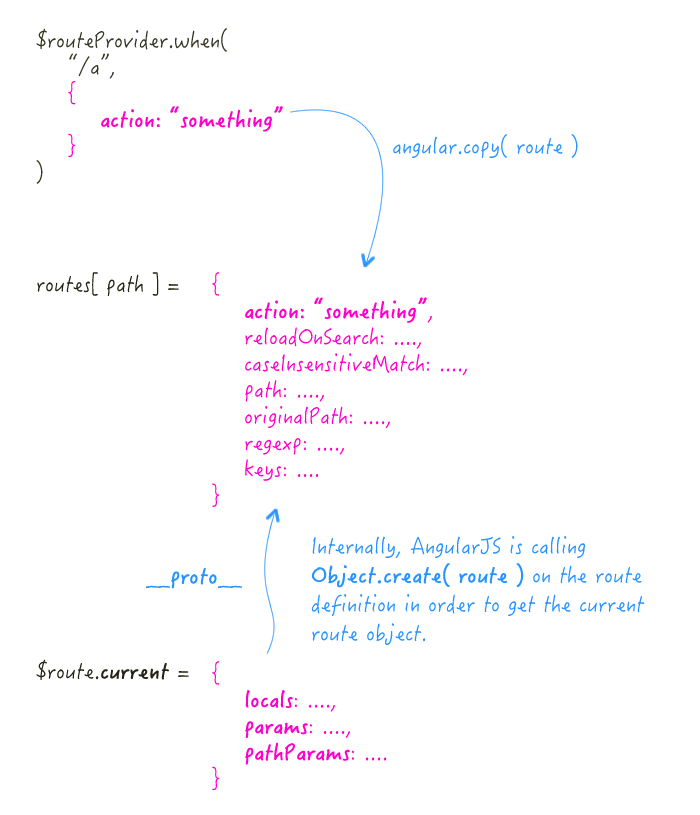 $routeProvider.when(
"/a",
{
action: "something"
}
)
angular.copy( route )
routes[ path ] = {
action: "something",
reloadOnSearch: ....,
caseInsensitiveMatch: ....,
path: ....,
originalPath: ....,
regexp: ....,
keys: ....
}
Internally, AngularJS is calling
Object.create( route ) on the route
definition in order to get the current
route object.
__proto__
$route.current = {
locals: ....,
params: ....,
pathParams: ....
}